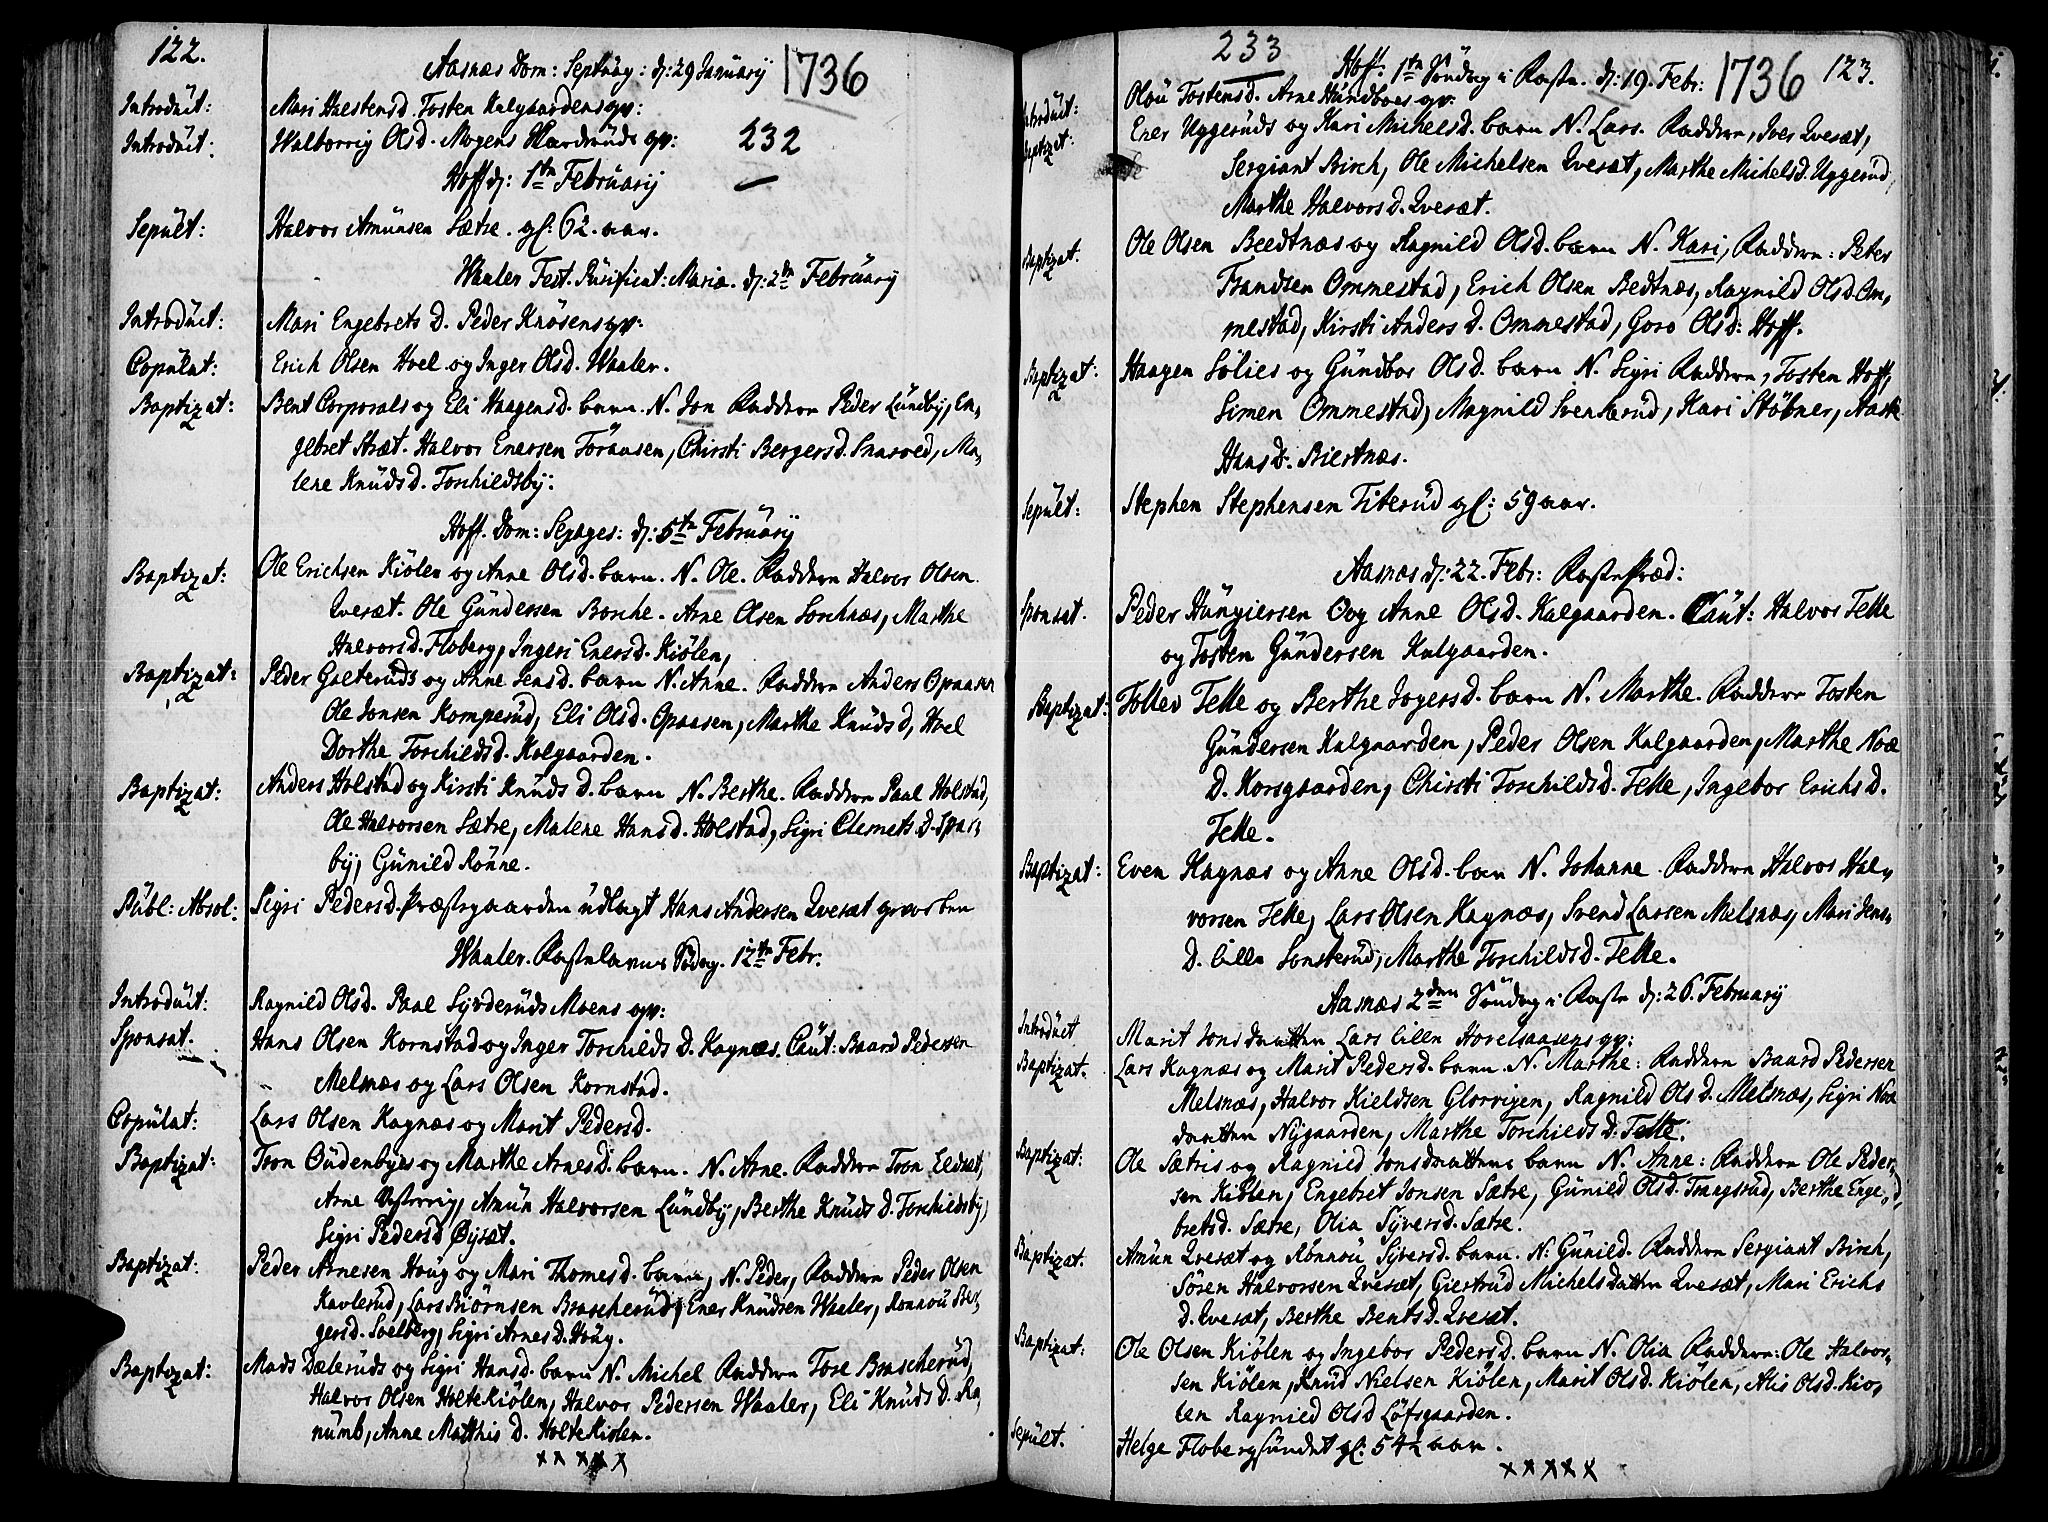 122.
Aasnæs Dom: Septuag: d: 29 Januarij 1736
Introduit: Mari Halstensd. Tosten Kalgaardens qv:
Introduit: Walborrig Olsd. Mogens Hardruds qv: 232
Hoff d: 1te Februarij
Sepult: Halvor Amunsen Sætre. gl: 62. aar.
Waaler Fest. Purificat: Mariæ. d: 2de Februarij
Introduit: Mari Engebrets D. Peder Knøsens qv:
Copulat: Erich Olsen Hoel og Inger Olsd. Waaler.
Baptizat: Bent Corporals og Eli Haagensd. barn. N. Jon Faddere Peder Lundby, En,
gebret Stræt. Halvor Enersen Toraasen, Chirsti Bergersd. Snarved, Ma,
lene Knudsd. Torchildsby.
Hoff. Dom: Sexages: d: 5te Februarij
Baptizat: Ole Erichsen Kiølen og Anne Olsd. barn. N. Ole. Faddere Halvor Olsen
Qvesæt. Ole Gundersen Borche. Arne Olsen Sorchnæs, Marthe
Halvorsd. Floberg, Ingeri Enersd. Kiølen,
Baptizat: Peder Galteruds og Anne Jensd. barn N. Anne. Faddere Anders Opaasen
Ole Jonsen Komperud, Eli Olsd. Opaasen, Marthe Knudsd, Hoel
Dorthe Torchildsd. Kalgaarden.
Baptizat: Anders Holstad og Kirsti Knuds D. barn N. Berthe. Faddere Paal Holstad,
Ole Halvorsen Sætre, Malene Hansd. Holstad, Sigri Clemets D. Spar,
by, Gunild Rønne.
Publ: Absol: Sigri Pedersd. Præstegaarden udlagt Hans Andersen Qvesæt
Waaler. Fastelavns Sødag. 12te Febr.
Introduit: Ragnild Olsd. Paal Syverudsmoens qv:
Sponsat. Hans Olsen Kornstad og Inger Torchilds D. Kagnæs. Caut: Baard Pedersen
Melnæs og Lars Olsen Kornstad.
Copulat: Lars Olsen Kagnæs og Marit Pedersd.
Baptizat: Tron Oudenbyes og Marthe Arnesd. barn. N. Arne. Faddere Tron Eldsæt,
Arne Vesterrig, Amun Halvorsen Lundby, Berthe Knuds D. Torchildsby,
Sigri Pedersd Øysæt.
Baptizat: Peder Arnesen Houg og Mari Thomesd. barn, N. Peder, Faddere Peder Olsen
Kavlerud, Lars Biørnsen Brascherud, Ener Knudsen Waaler, Ronnou Ber,
gersd. Soelberg, Sigri Arnes D. Houg.
Baptizat: Mads Dæleruds og Sigri Hansd. barn N. Michel Faddere Tore Brascherud,
Halvor Olsen HolteKiølen, Halvor Pedersen Waaler, Eli Knuds D. Ra,
numb, Anne Matthis D. HolteKiølen.
x x x x x
233
Hoff. 1te Søndag i Faste. d: 19. Febr: 1736 123.
Introduit: Olou Tostensd. Arne Hundboes qv:
Baptizat: Ener Uggeruds og Kari Michelsd. barn N. Lars. Faddere, Iver Qvesæt,
Sergiant Birch, Ole Michelsen Qvesæt, Marthe Michelsd. Uggerud,
Marthe Halvorsd. Qvesæt.
Baptizat. Ole Olsen Beedtnæs og Ragnild Olsd. barn N. Kari, Faddere: Peter
Frandsen Ommestad, Erich Olsen Bedtnæs, Ragnild Olsd. Om,
mestad, Kirsti Anders d. Ommestad, Goro Olsd: Hoff.
Baptizat: Haagen Solies og Gundbor Olsd. barn N. Sigri Faddere, Tosten Hoff,
Simen Ommestad, Magnild Svenkerud, Kari Støbner,
Hans D. Biertnæs.
Sepult: Stephen Stephensen Titerud gl: 59 aar.
Aasnæs d: 22. Febr: FastePræd:
Sponsat. Peder Hungiersen og Anne Olsd. Kalgaarden. Caut: Halvor Telle
og Tosten Gundersen Kalgaarden.
Baptizat: Tollev Telle og Berthe Jogersd. barn N. Marthe. Faddere Tosten
Gundersen Kalgaarden, Peder Olsen Kalgaarden, Marthe Noæ
D. Korsgaarden, Chirsti Torchildsd. Telle, Ingebor Erichs D.
Telle.
Baptizat: Even Kagnæs og Anne Olsd. barn N. Johanne. Faddere Halvor Hal,
vorsen Telle, Lars Olsen Kagnæs, Svend Larsen Melsnæs, Mari Jens
D. lille Sonsterud, Marthe Torchilds D. Telle.
Aasnæs 2den Søndag i Faste d: 26. Februarij
Introduit Marit Jonsdaatter Lars lille Hovelsaasens qv:
Baptizat. Lars Kagnæs og Marit Pedersd. barn. N. Marthe: Faddere Baard Pedersen
Melsnæs, Halvor Kieldsen Glorvigen, Ragnild Ols D. Melsnæs, Sigri Noæ
daatter Nygaarden, Marthe Torchilds D. Telle.
Baptizat: Ole Sætris og Ragnild Jonsdaatters barn N. Anne: Faddere Ole Peder,
sen Kiølen, Engebret Jonsen Sætre, Gunild Olsd. Trangsrud, Berthe Enge,
bretsd. Sætre, Olia Syversd. Sætre.
Baptizat. Amun Qvesæt og Rønnou Syversd. barn. N: Gunild. Faddere Sergiant Birch,
Søren Halvorsen Qvesæt, Giertrud Michelsdatter Qvesæt, Mari Erichs
D. Qvesæt, Berthe Bentsd. Qvesæt.
Baptizat: Ole Olsen Kiølen og Ingebor Pedersd. barn N. Olia Faddere: Ole Halvor,
sen Kiølen, Knud Nielsen Kiølen, Marit Olsd. Kiølen, Alis Olsd. Kiø,
len Ragnild Olsd Løfsgaarden.
Sepult. Helge Flobergsundet gl: 54½ aar.
x x x x x